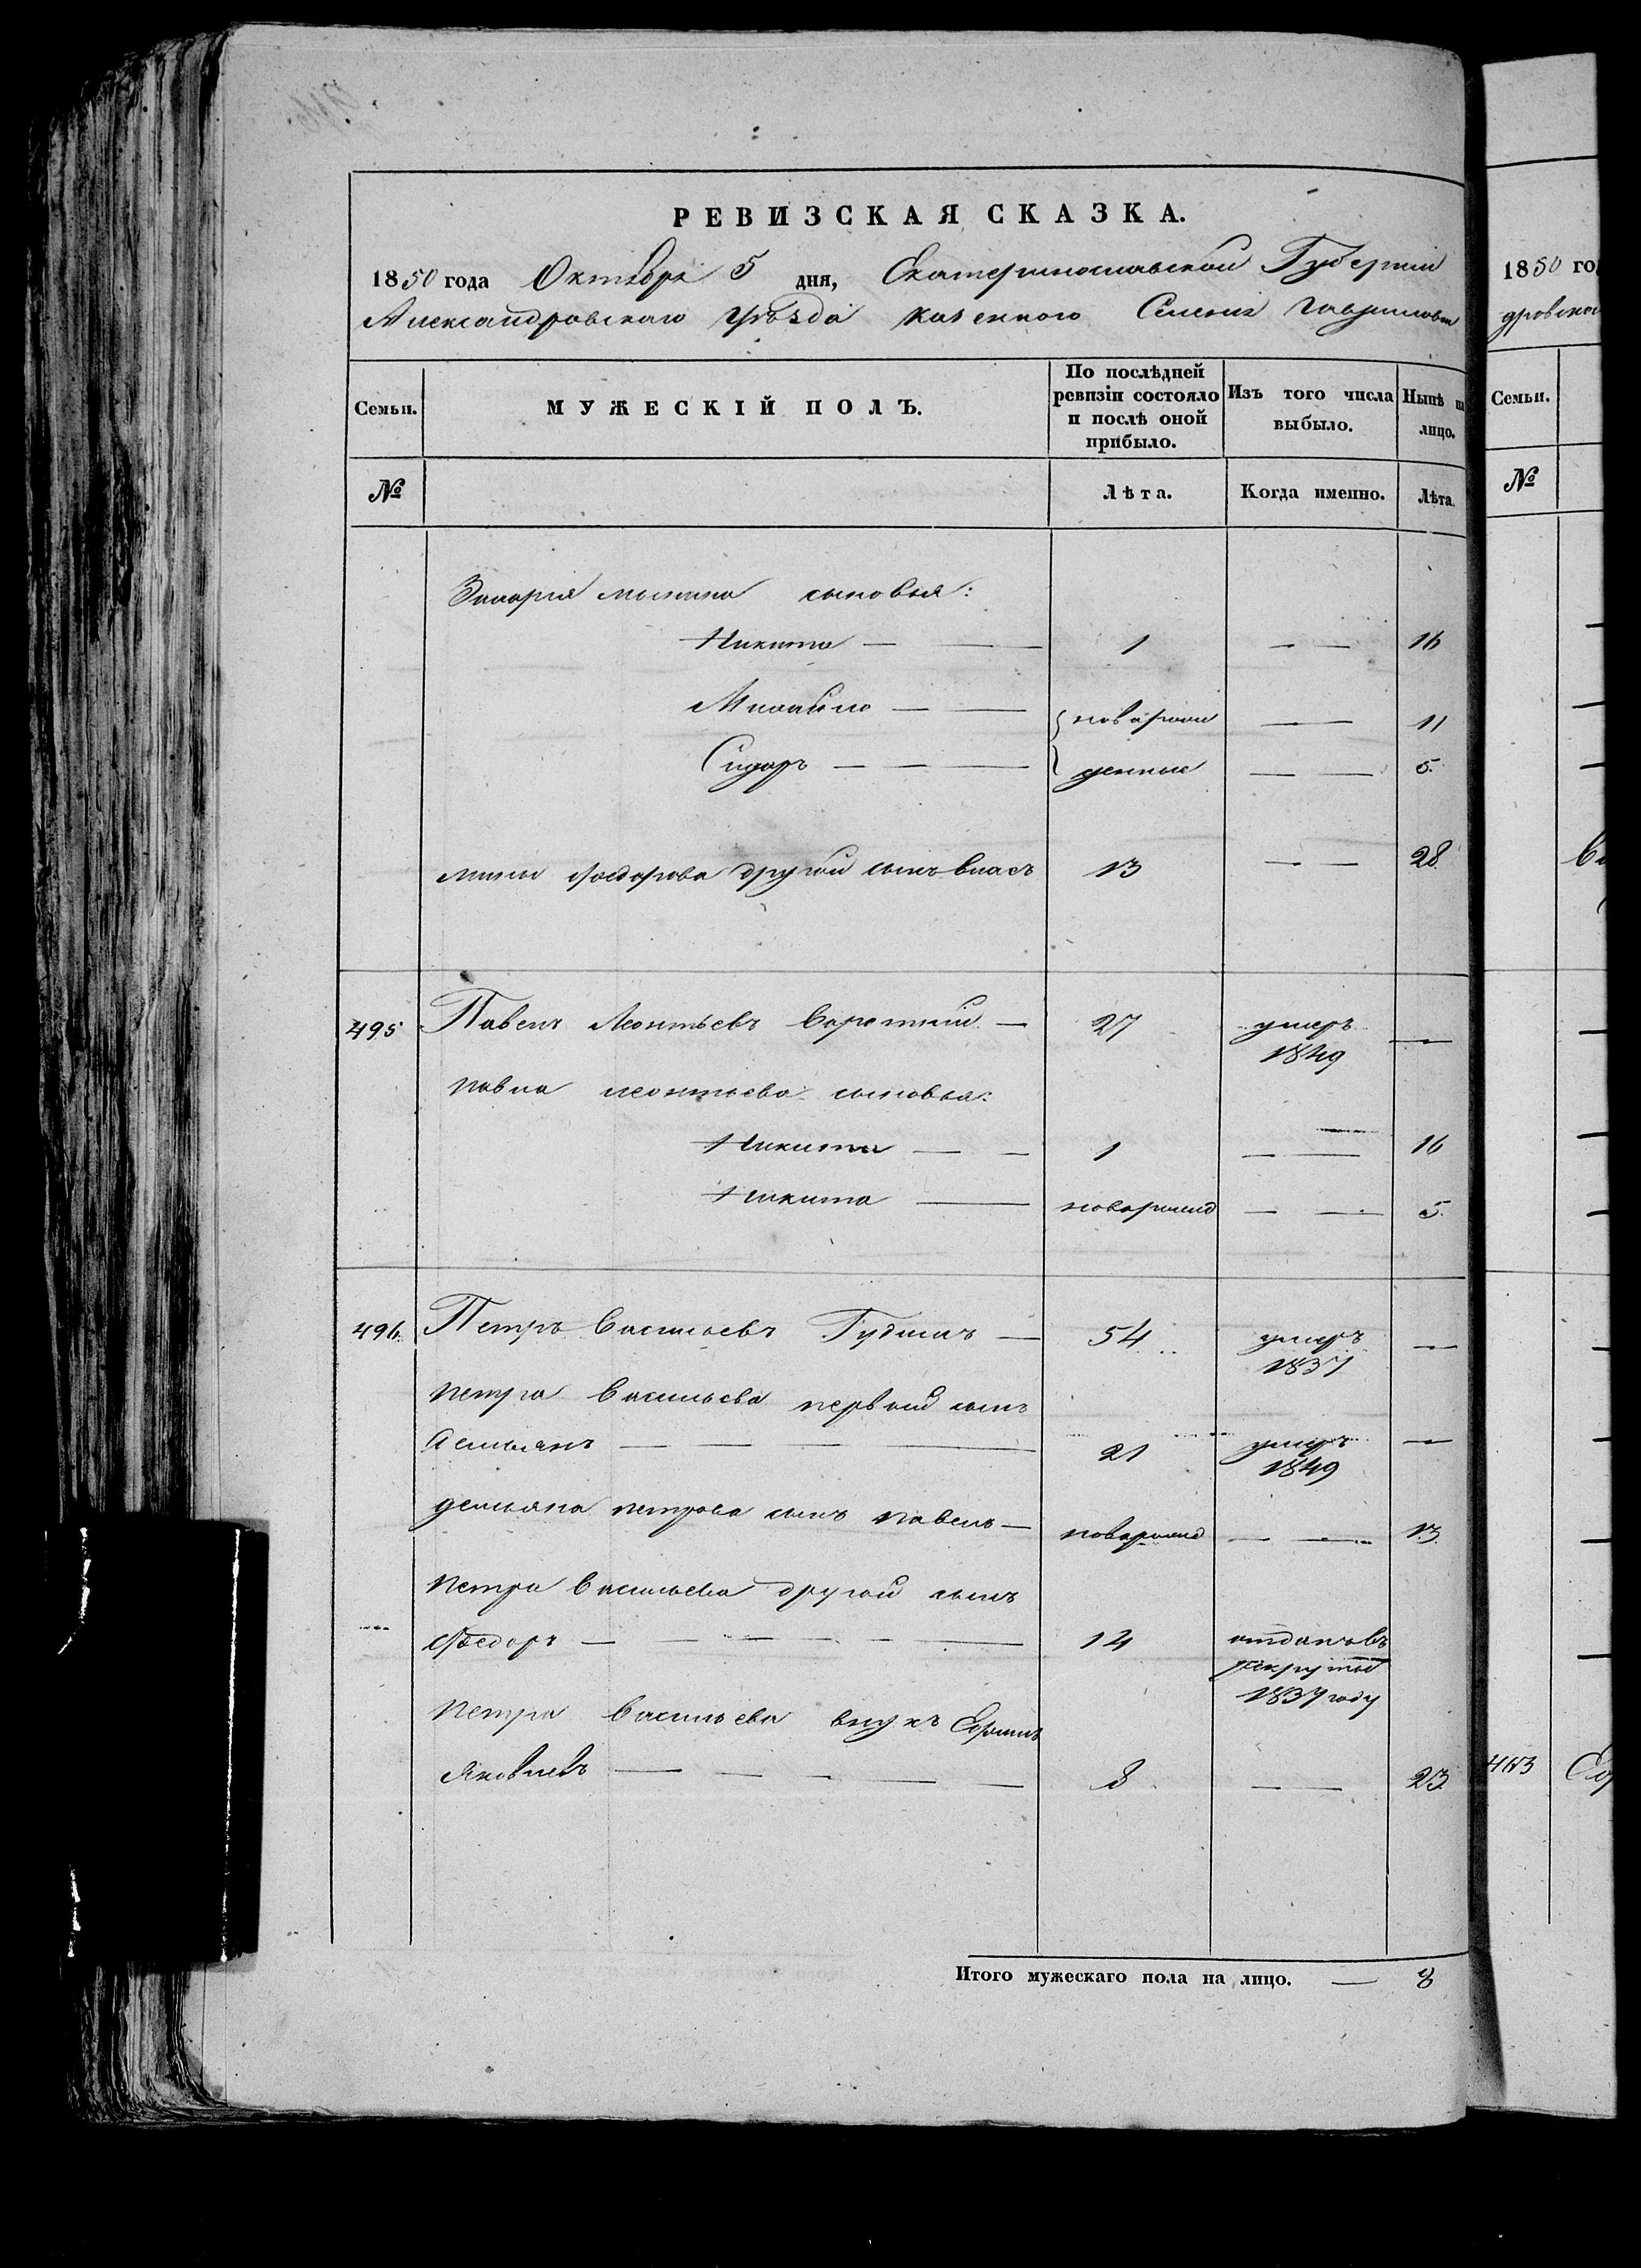 РЕВИЗСКАЯ СКАЗКА.
1850 года Октября 5 дня, Екатеринославской Губернии
Александровскаго уѣзда казенного Селения Гавриловки
Семьи.
МУЖЕСКІЙ ПОЛЪ.
По послѣдней ревизіи состояло и послѣ оной прибыло.
Изъ того числа выбыло.
Нынѣ на лицо.
№
Лѣта.
Когда именно.
Лѣта.
Захария минина сыновья:
Никита — — 1 — — 16
Михайло — — новорож — — 11
Сидоръ — — — денные — — 5.
мины федорова другой сынъ власъ 13 — — 28
495 Павелъ Леонтьевъ Короткий — 27 умеръ 1849 —
павла леонтьева сыновья:
Никита — — 1 — — 16
Никита — новорожд — — 5.
496 Петръ Васильевъ Гудимъ — 54 умеръ 1837 —
петра Васильева первой сынъ
Демьянъ — — — — 21 умеръ 1849 —
демьяна петрова сынъ павелъ — новорожд — — 13.
петра Васильева другой сынъ
Федоръ — — — — — 14 отданъ въ
рекруты
1837 году
петра Васильева внукъ Ефимъ
Яковлевъ — — — — — 8 — — 23.
Итого мужескаго пола на лицо. — 8
1850 го
дровско
Семьи.
№